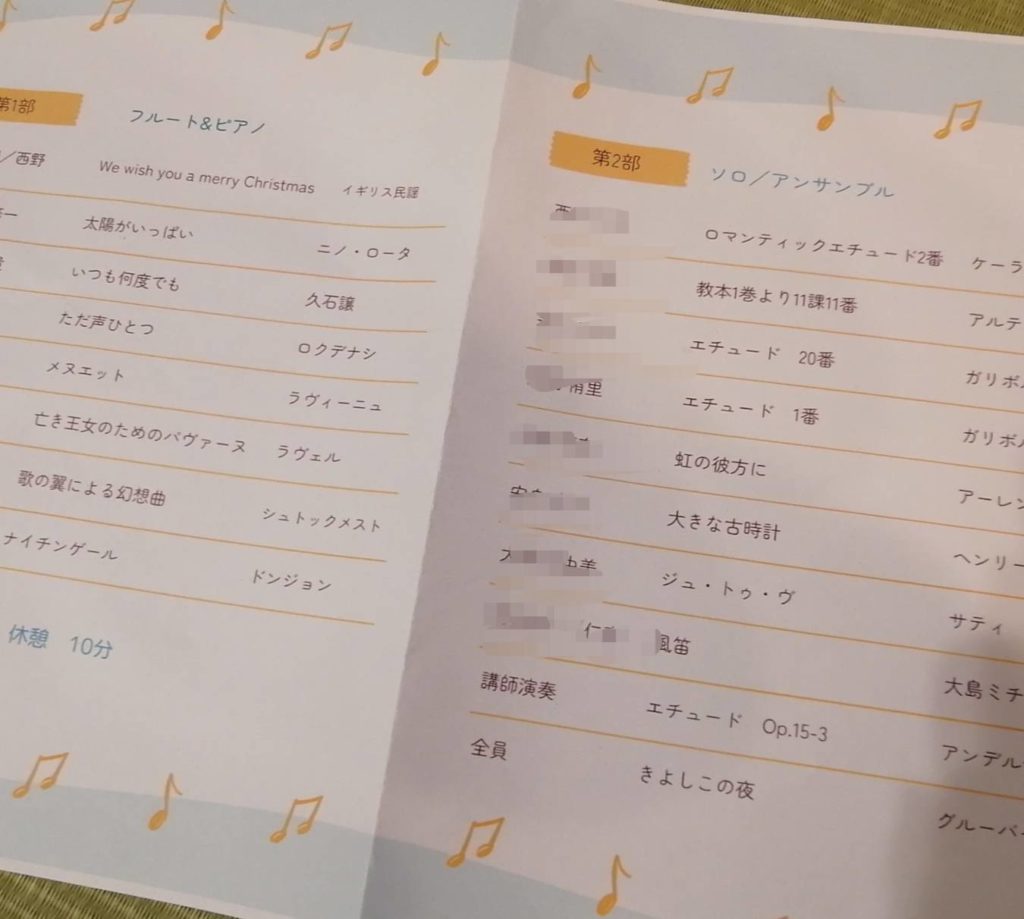 第1部 フルート&ピアノ
／西野 We wish you a merry Christmas イギリス民謡
一 太陽がいっぱい ニノ・ロータ
いつも何度でも 久石譲
ただ声ひとつ ロクデナシ
メヌエット ラヴィーニュ
亡き王女のためのパヴァーヌ ラヴェル
歌の翼による幻想曲 シュトックメスト
ナイチンゲール ドンジョン
休憩 10分
第2部 ソロ／アンサンブル
ロマンティックエチュード2番 ケーラ
教本1巻より11課11番 アルテ
エチュード 20番 ガリボ
里 エチュード 1番 ガリボ
虹の彼方に アーレン
大きな古時計 ヘンリー
ジュ・トゥ・ヴ サティ
風笛 大島ミチ
講師演奏 エチュード Op.15-3 アンデル
全員 きよしこの夜 グルーバー